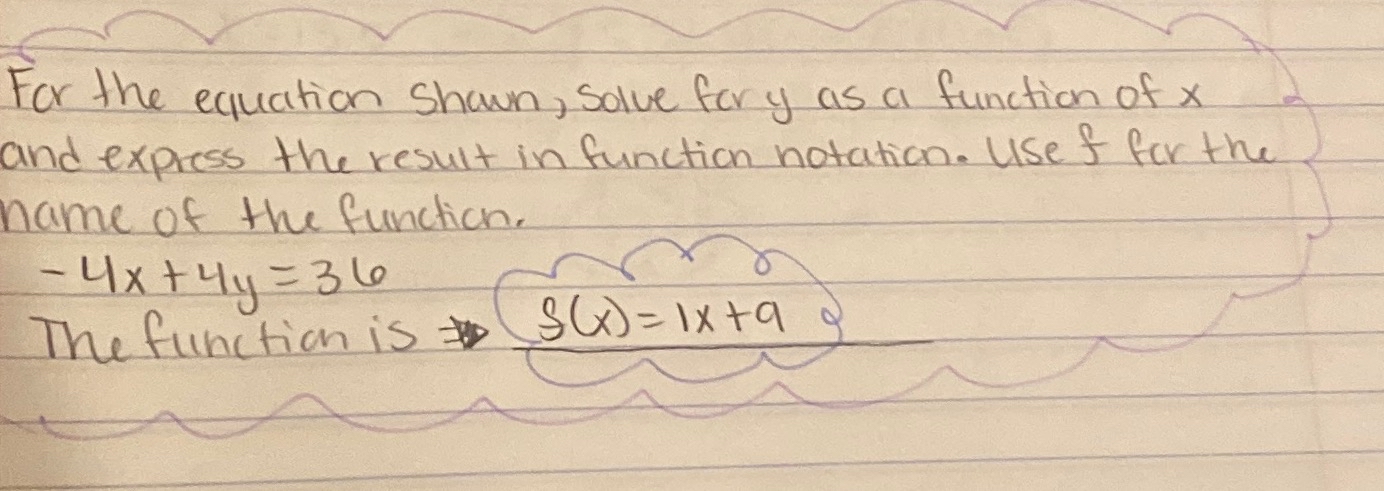 For the equation shown, solve for y as a function of x
and express the result in function notation. Use f for the
name of the function.
-4x+4y=36
The function is → f(x)=1x+9